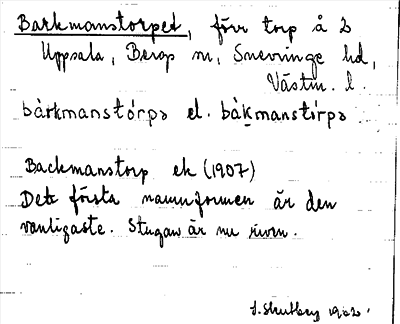 Barkmanstorpet, förr torp å 2
Uppsala, Bergs sn, Snevringe hd,
Västm. l.
bàrkmanstórpə el. bàkmanstórpə
Backmanstorp ek (1907)
Det första namnformen är den
vanligaste. Stugan är nu riven.
1902.